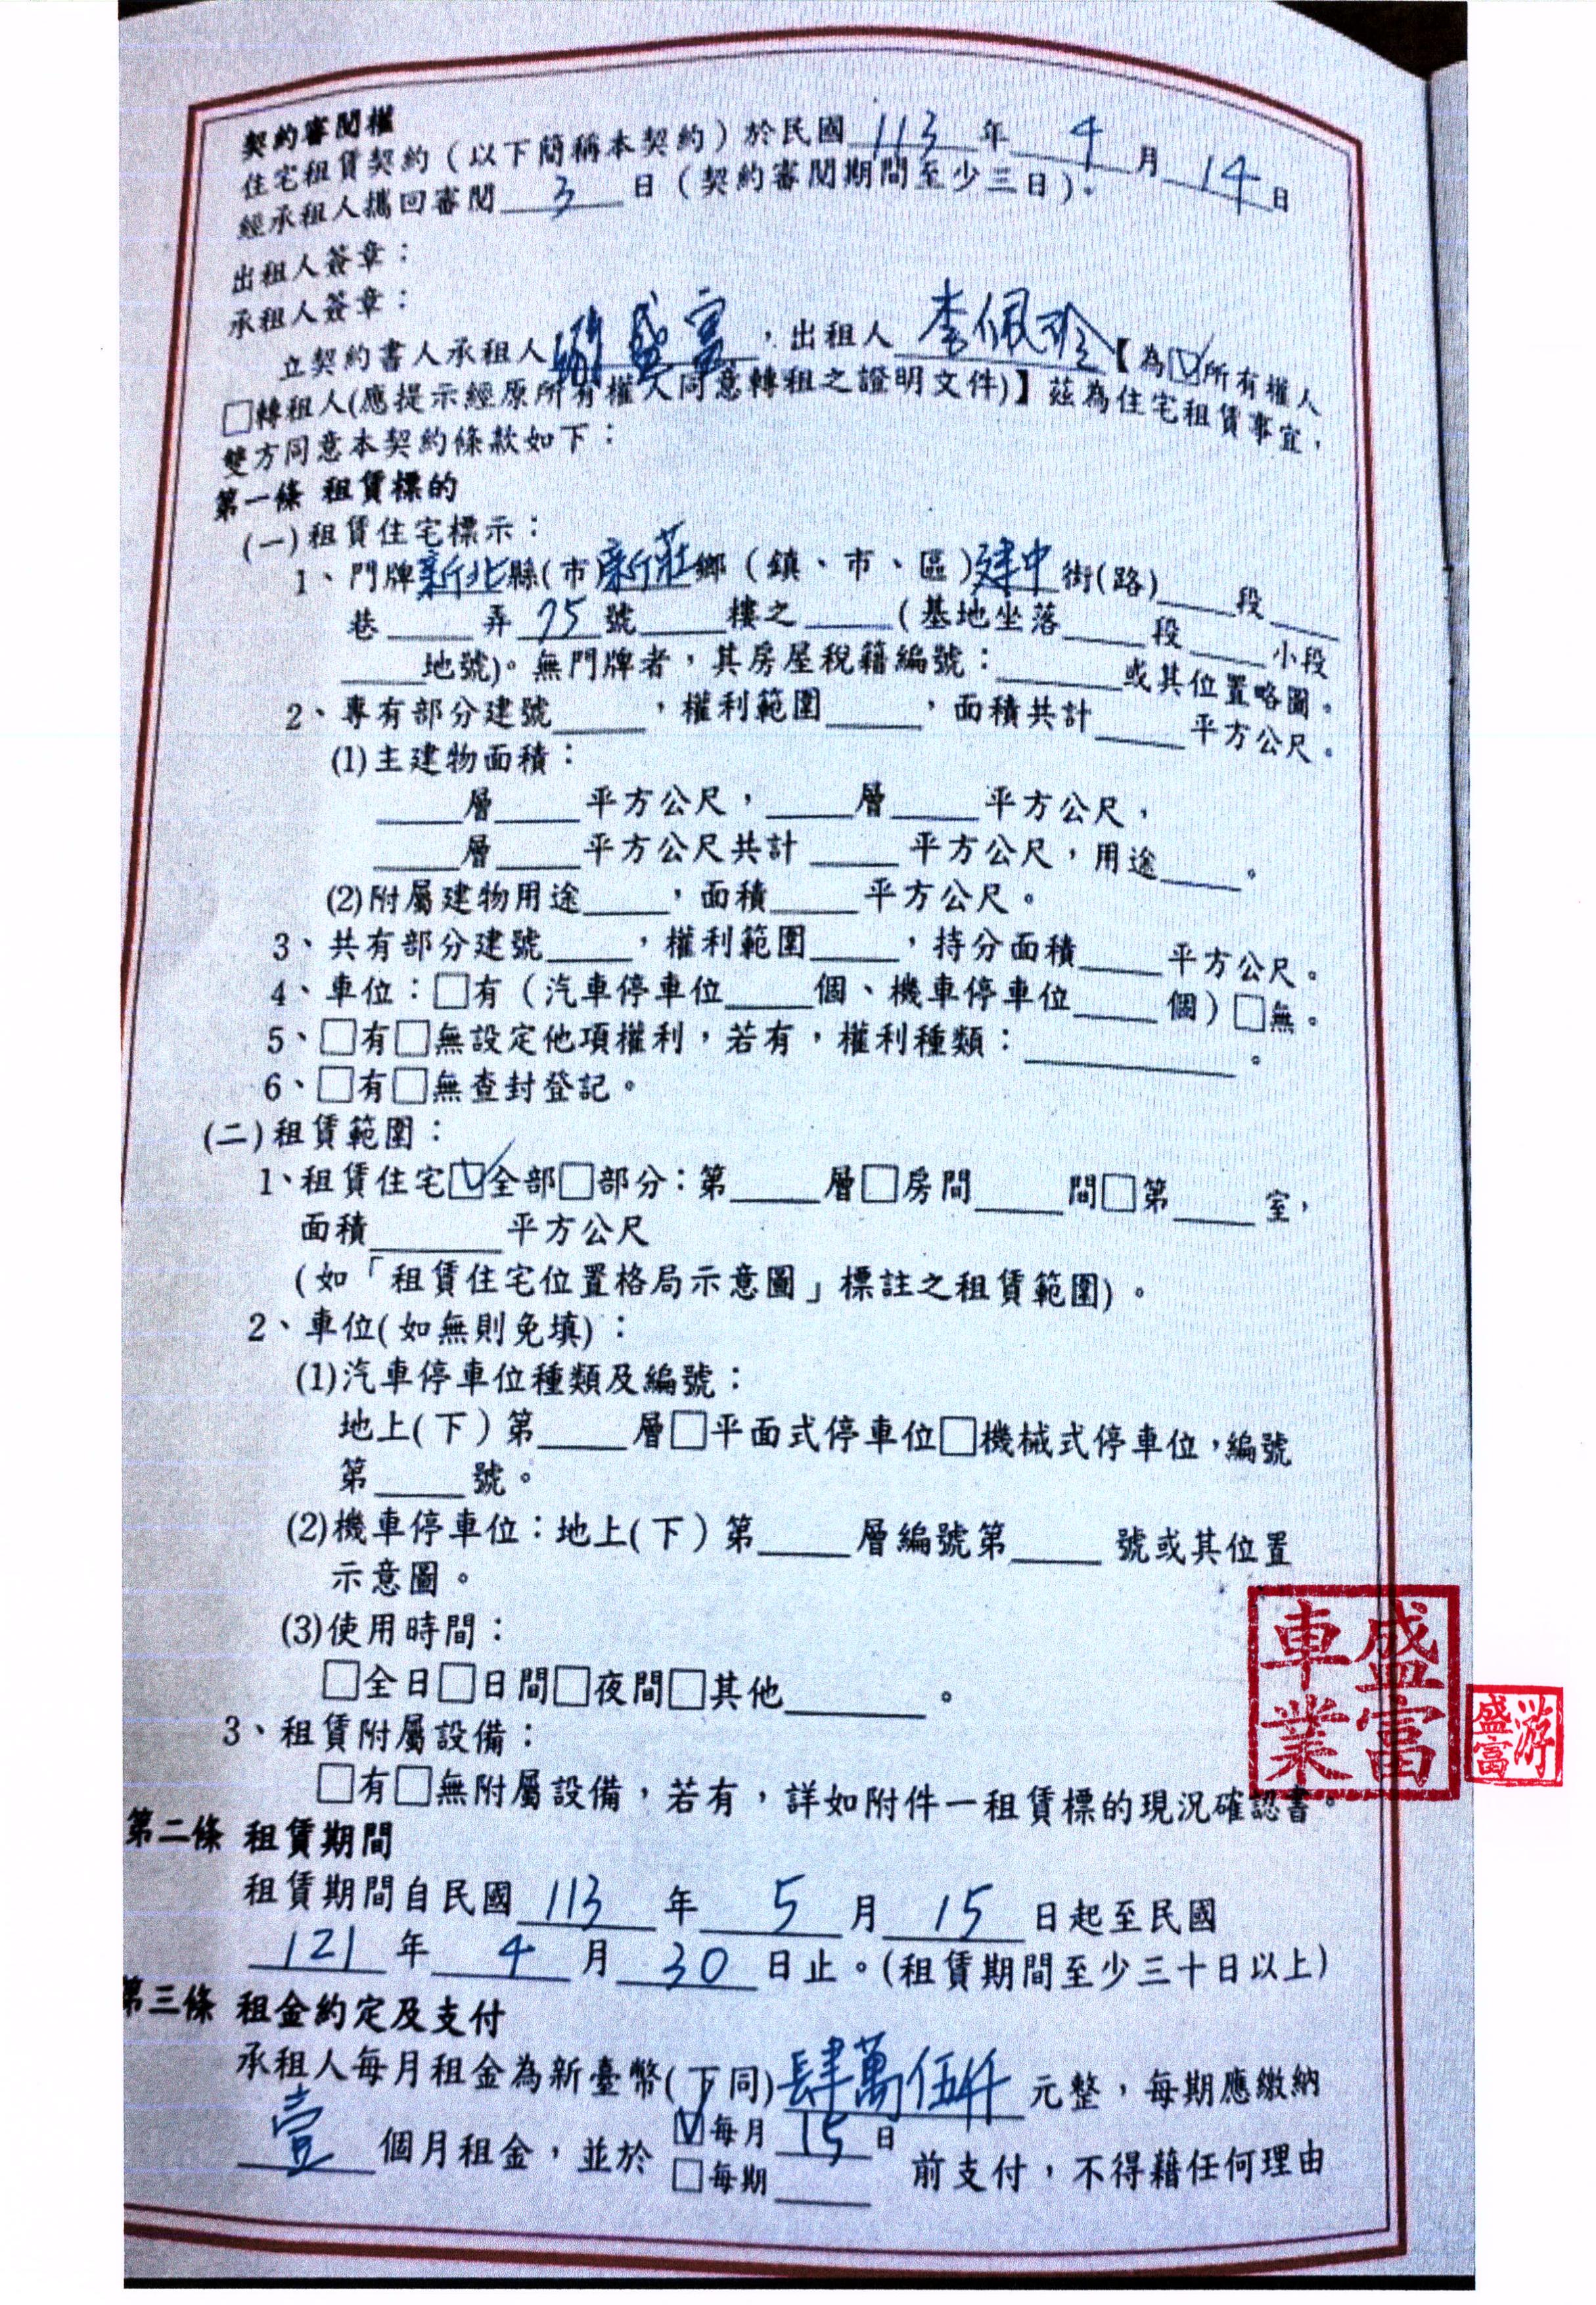 契約審閱權
住宅租賃契約（以下簡稱本契約）於民國 113 年 4 月 14 日
經承租人攜回審閱 3 日（契約審閱期間至少三日）。
出租人簽章：
承租人簽章：
立契約書人承租人 游盛富 ，出租人 李佩玲 【為☑所有權人
□轉租人(應提示經原所有權人同意轉租之證明文件)】茲為住宅租賃事宜，
雙方同意本契約條款如下：
第一條 租賃標的
(一)租賃住宅標示：
1、門牌新北縣(市)新莊鄉（鎮、市、區）建中街(路)____段____
巷____弄 75 號____樓之____（基地坐落____段____小段
____地號)。無門牌者，其房屋稅籍編號：______或其位置略圖。
2、專有部分建號____，權利範圍____，面積共計____平方公尺。
(1)主建物面積：
____層____平方公尺，____層____平方公尺，
____層____平方公尺共計____平方公尺，用途____。
(2)附屬建物用途____，面積____平方公尺。
3、共有部分建號____，權利範圍____，持分面積____平方公尺。
4、車位：□有（汽車停車位____個、機車停車位____個）□無。
5、□有□無設定他項權利，若有，權利種類：__________。
6、□有□無查封登記。
(二)租賃範圍：
1、租賃住宅☑全部□部分：第____層□房間____間□第____室，
面積______平方公尺
(如「租賃住宅位置格局示意圖」標註之租賃範圍)。
2、車位(如無則免填)：
(1)汽車停車位種類及編號：
地上(下)第____層□平面式停車位□機械式停車位，編號
第____號。
(2)機車停車位：地上(下)第____層編號第____號或其位置
示意圖。
(3)使用時間：
□全日□日間□夜間□其他______。
3、租賃附屬設備：
□有□無附屬設備，若有，詳如附件一租賃標的現況確認書。
盛富車業
游盛富
第二條 租賃期間
租賃期間自民國 113 年 5 月 15 日起至民國
121 年 4 月 30 日止。(租賃期間至少三十日以上)
第三條 租金約定及支付
承租人每月租金為新臺幣(下同)肆萬伍仟元整，每期應繳納
壹 個月租金，並於 ☑每月 15 日 □每期____ 前支付，不得藉任何理由